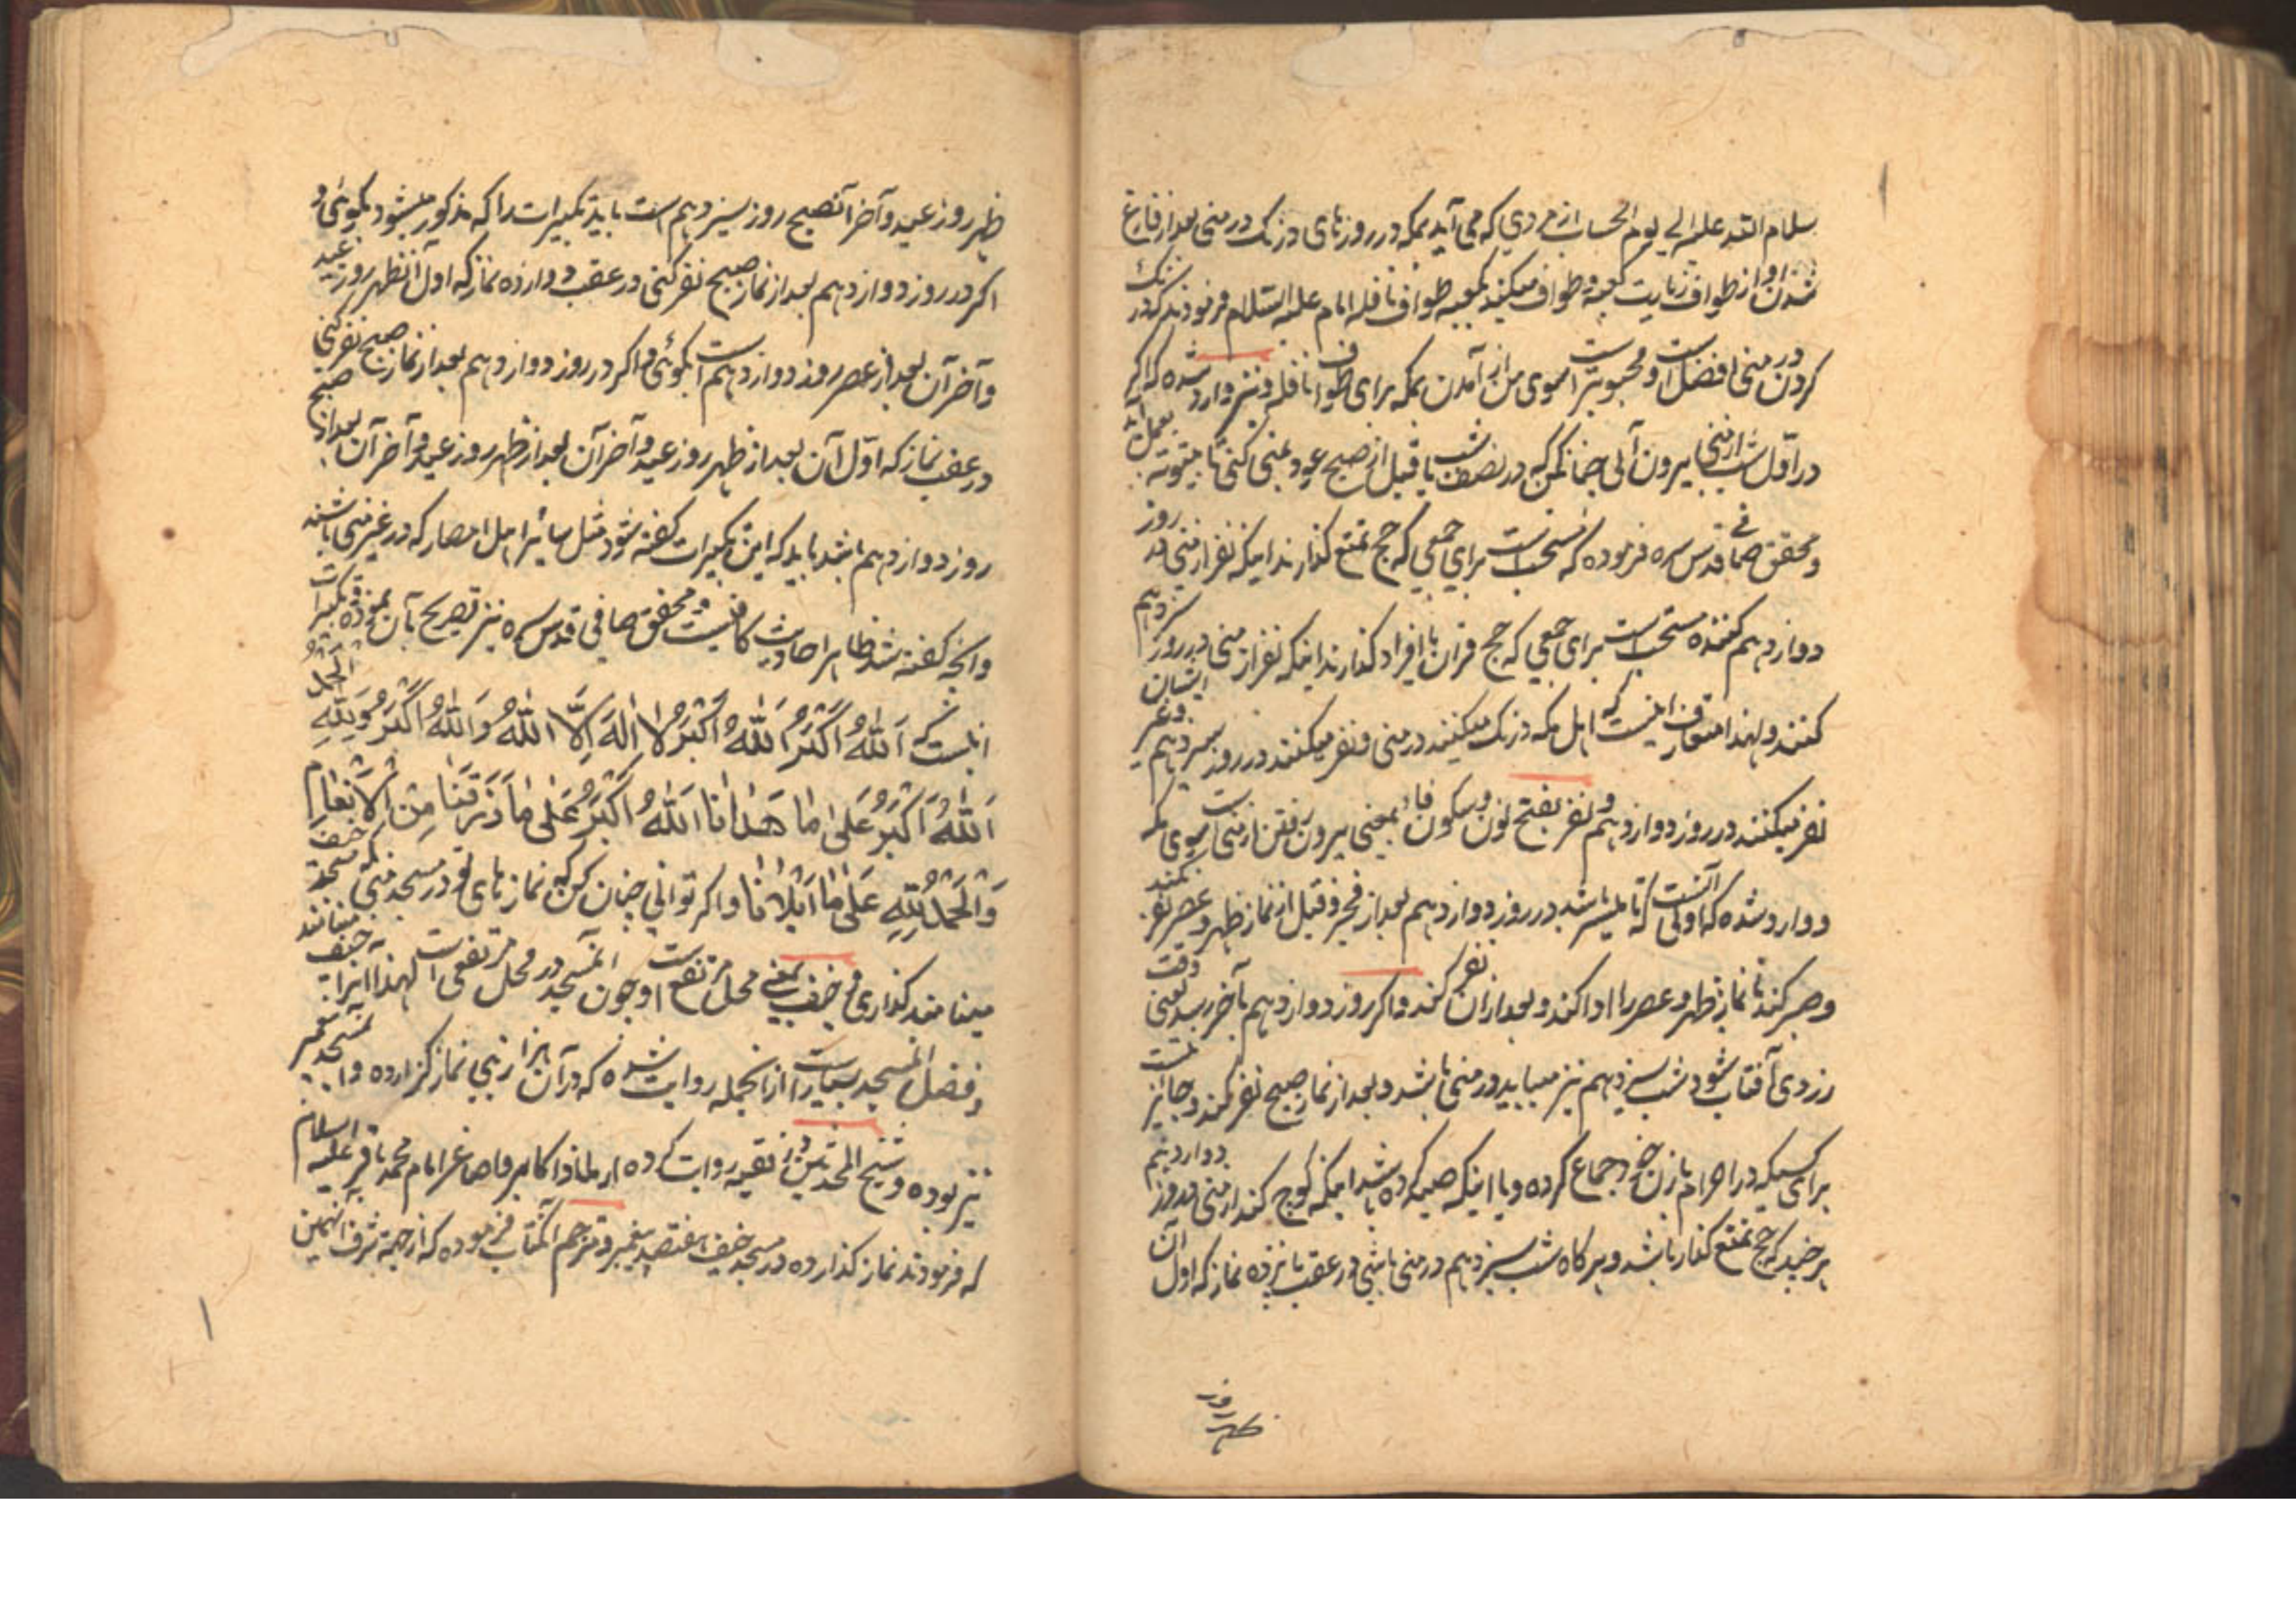 سلام الله علیه الی یوم الحساب از مردی که می آید بمکه در روزهای درنک در منی بعد از فارغ
شدن او از طواف زیارت کعبه و طواف میکند بکعبه طواف نافله امام علیه السلام فرمودند که درنک
کردن در منی افضل است و محبوبتر است بسوی من از آمدن بمکه برای طواف نافله و نیز وارد شده که اگر
در اول شب از منی بیرون آئی چنان کن که در نصف شب یا قبل از صبح عود بمنی کنی تا بیتوته بعمل آید
و محقق صافی قدس سره فرموده که مستحب است برای جمعی که حج تمتع کذارند اینکه نفر از منی در روز
دوازدهم کنند و مستحب است برای جمعی که حج قران یا افراد کذارند اینکه نفر از منی در روز سیزدهم
کنند و لهذا متعارف اینست که اهل مکه درنک میکنند در منی و نفر میکنند در روز سیزدهم و غیر ایشان
نفر میکنند در روز دوازدهم و نفر بفتح نون و سکون فاء بمعنی بیرون رفتن از منی است بسوی مکه
و وارد شده که اولی آنست که تا میسر باشد در روز دوازدهم بعد از فجر و قبل از نماز ظهر و عصر نفر نکند
و صبر کند تا نماز ظهر و عصر را ادا کند و بعد از آن نفر کند و اکر روز دوازدهم بآخر رسد یعنی وقت
زردی آفتاب شود شب سیزدهم نیز میباید در منی باشد و بعد از نماز صبح نفر کند و جائز نیست
برای کسیکه در احرام با زن خود جماع کرده و یا اینکه صید کرده باشد اینکه کوچ کند از منی در روز دوازدهم
هر چند که حج تمتع کذار باشد و هر کاه شب سیزدهم در منی باشی در عقب پانزده نماز که اول آن
ظهر روز
ظهر روز عید و آخر آن صبح روز سیزدهم است باید تکبیرات را که مذکور میشود بکوئی و
اکر در روز دوازدهم بعد از نماز صبح نفر کنی در عقب دوازده نماز که اول آن ظهر روز عید
و آخر آن بعد از عصر روز دوازدهم است بکوئی و اکر در روز دوازدهم بعد از نماز صبح نفر کنی
در عقب نماز که اول آن بعد از ظهر روز عید و آخر آن بعد از ظهر روز عید و آخر آن بعد از صبح
روز دوازدهم باشد باید که این تکبیرات کفته شود مثل سائر اهل امصار که در غیر منی باشند
و آنچه کفته شد ظاهر احادیث کافیست و محقق صافی قدس سره نیز تصریح بآن نموده و تکبیرات
اینست که اَللّٰهُ اَکْبَرُ اَللّٰهُ اَکْبَرُ لا اِلٰهَ اِلَّا اللّٰهُ وَاللّٰهُ اَکْبَرُ وَلِلّٰهِ الْحَمْدُ
اَللّٰهُ اَکْبَرُ عَلٰی ما هَدانا اَللّٰهُ اَکْبَرُ عَلٰی ما رَزَقَنا مِنْ بَهیمَةِ الْاَنْعامِ
وَالْحَمْدُ لِلّٰهِ عَلٰی ما اَبْلانا و اکر توانی چنان کن که نمازهای تو در مسجد منی که مسجد خیف
مینامند کذاری و خیف بمعنی محل مرتفع است و چون آن مسجد در محل مرتفعی است لهذا آنرا خیف مینامند
و فضل آن مسجد بسیار است از آنجمله روایت شده که در آن هزار نبی نماز کزارده و آن مسجد پیغمبر
نیز بوده و شیخ المحدثین در فقیه روایت کرده از ملاذ اکابر و اصاغر امام محمد باقر علیه السلام
که فرمودند نماز کذارده در مسجد خیف هفتصد پیغمبر و مترجم آن کتاب فرموده که از جهة شرف آن زمین